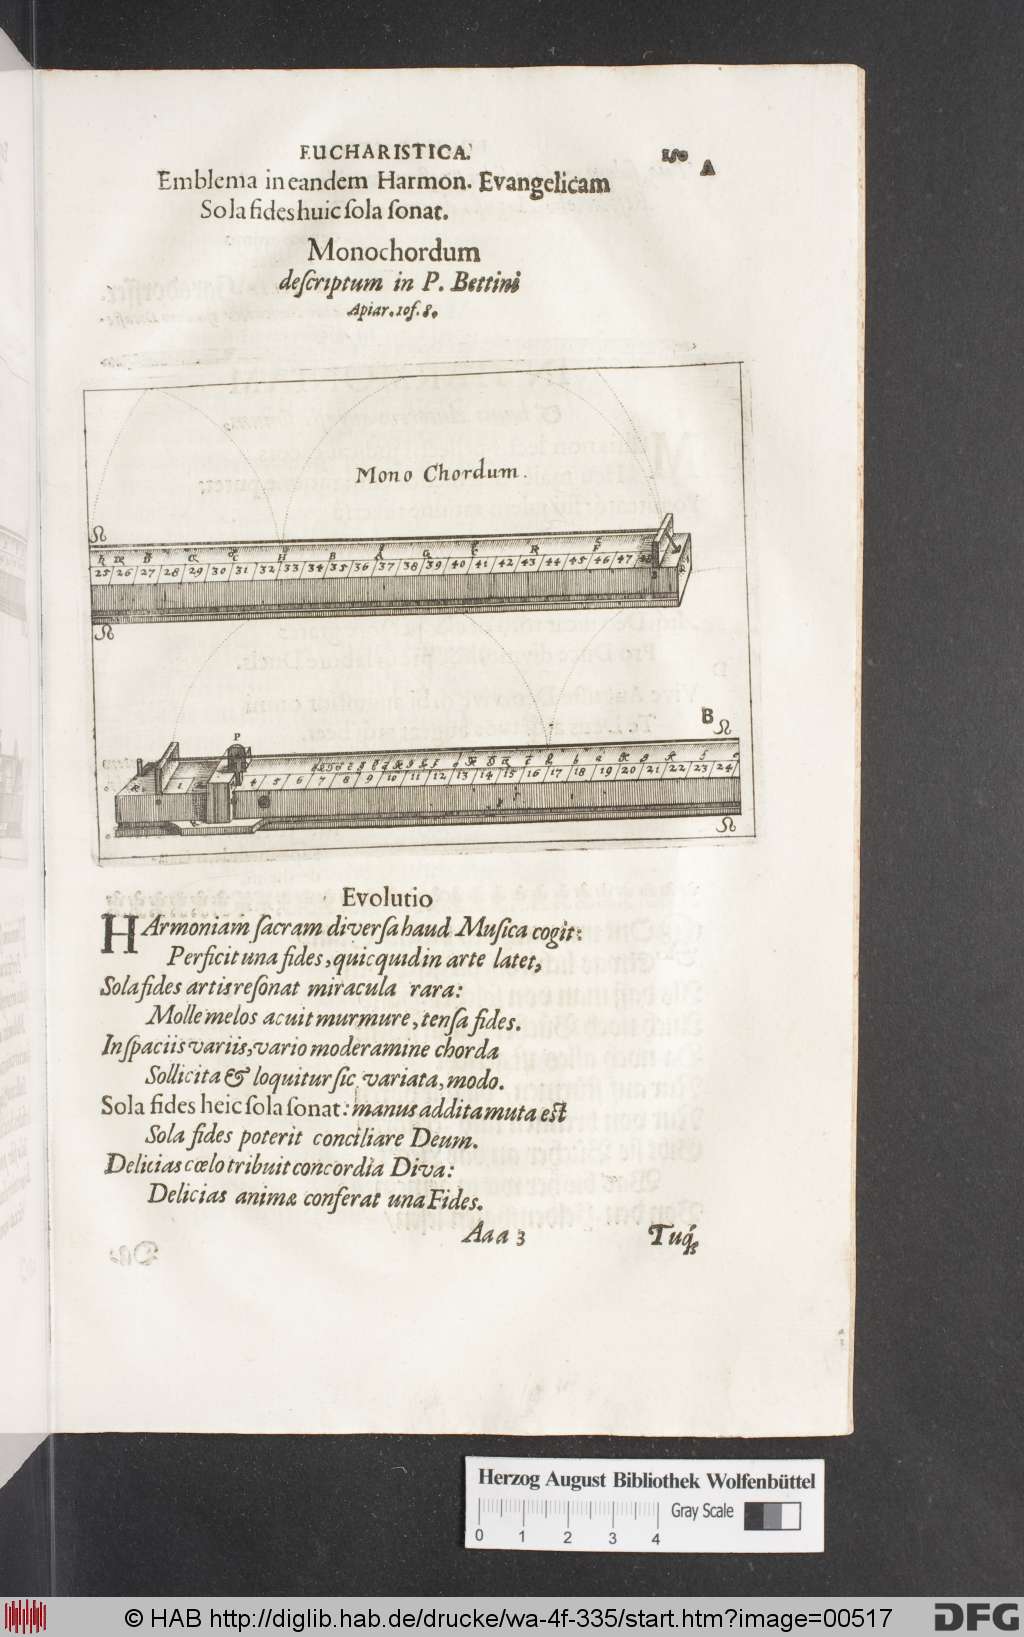 EUCHARISTICA.
150
A
Emblema in eandem Harmon. Evangelicam
Sola fides huic ſola ſonat.
Monochordum
deſcriptum in P. Bettini
Apiar. 10. f. 8.
Mono Chordum.
25 26 27 28 29 30 31 32 33 34 35 36 37 38 39 40 41 42 43 44 45 46 47 48
B
P
1 4 5 6 7 8 9 10 11 12 13 14 15 16 17 18 19 20 21 22 23 24
Evolutio
HArmoniam ſacram diverſa haud Muſica cogit:
Perficit una fides, quicquid in arte latet,
Sola fides artis reſonat miracula rara:
Molle melos acuit murmure, tenſa fides.
In ſpaciis variis, vario moderamine chorda
Sollicita & loquitur ſic variata, modo.
Sola fides heic ſola ſonat: manus addita muta eſt
Sola fides poterit conciliare Deum.
Delicias cœlo tribuit concordia Diva:
Delicias animæ conferat una Fides.
Aaa 3
Tuq́;
Herzog August Bibliothek Wolfenbüttel
Gray Scale
0 1 2 3 4
© HAB http://diglib.hab.de/drucke/wa-4f-335/start.htm?image=00517
DFG